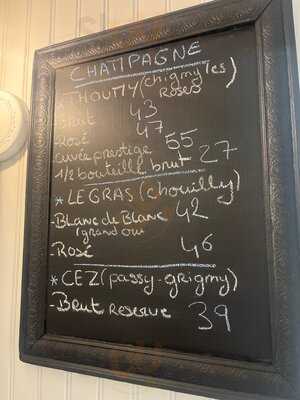 CHAMPAGNE
* THOUMY (chigny les
Roses)
- Brut 43
- Rosé 47
- cuvée prestige 55
1/2 bouteille brut 27
* LEGRAS (chouilly)
- Blanc de Blanc 42
(grand cru
- Rosé 46
* CEZ (passy-grigny)
- Brut Reserve 39